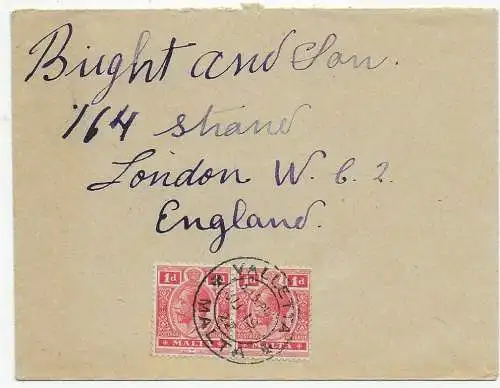 Bright and Son.
164 Strand
London W. C. 2.
England.
1d 1d 1d 1d
VALLETTA
MALTA
MALTA MALTA